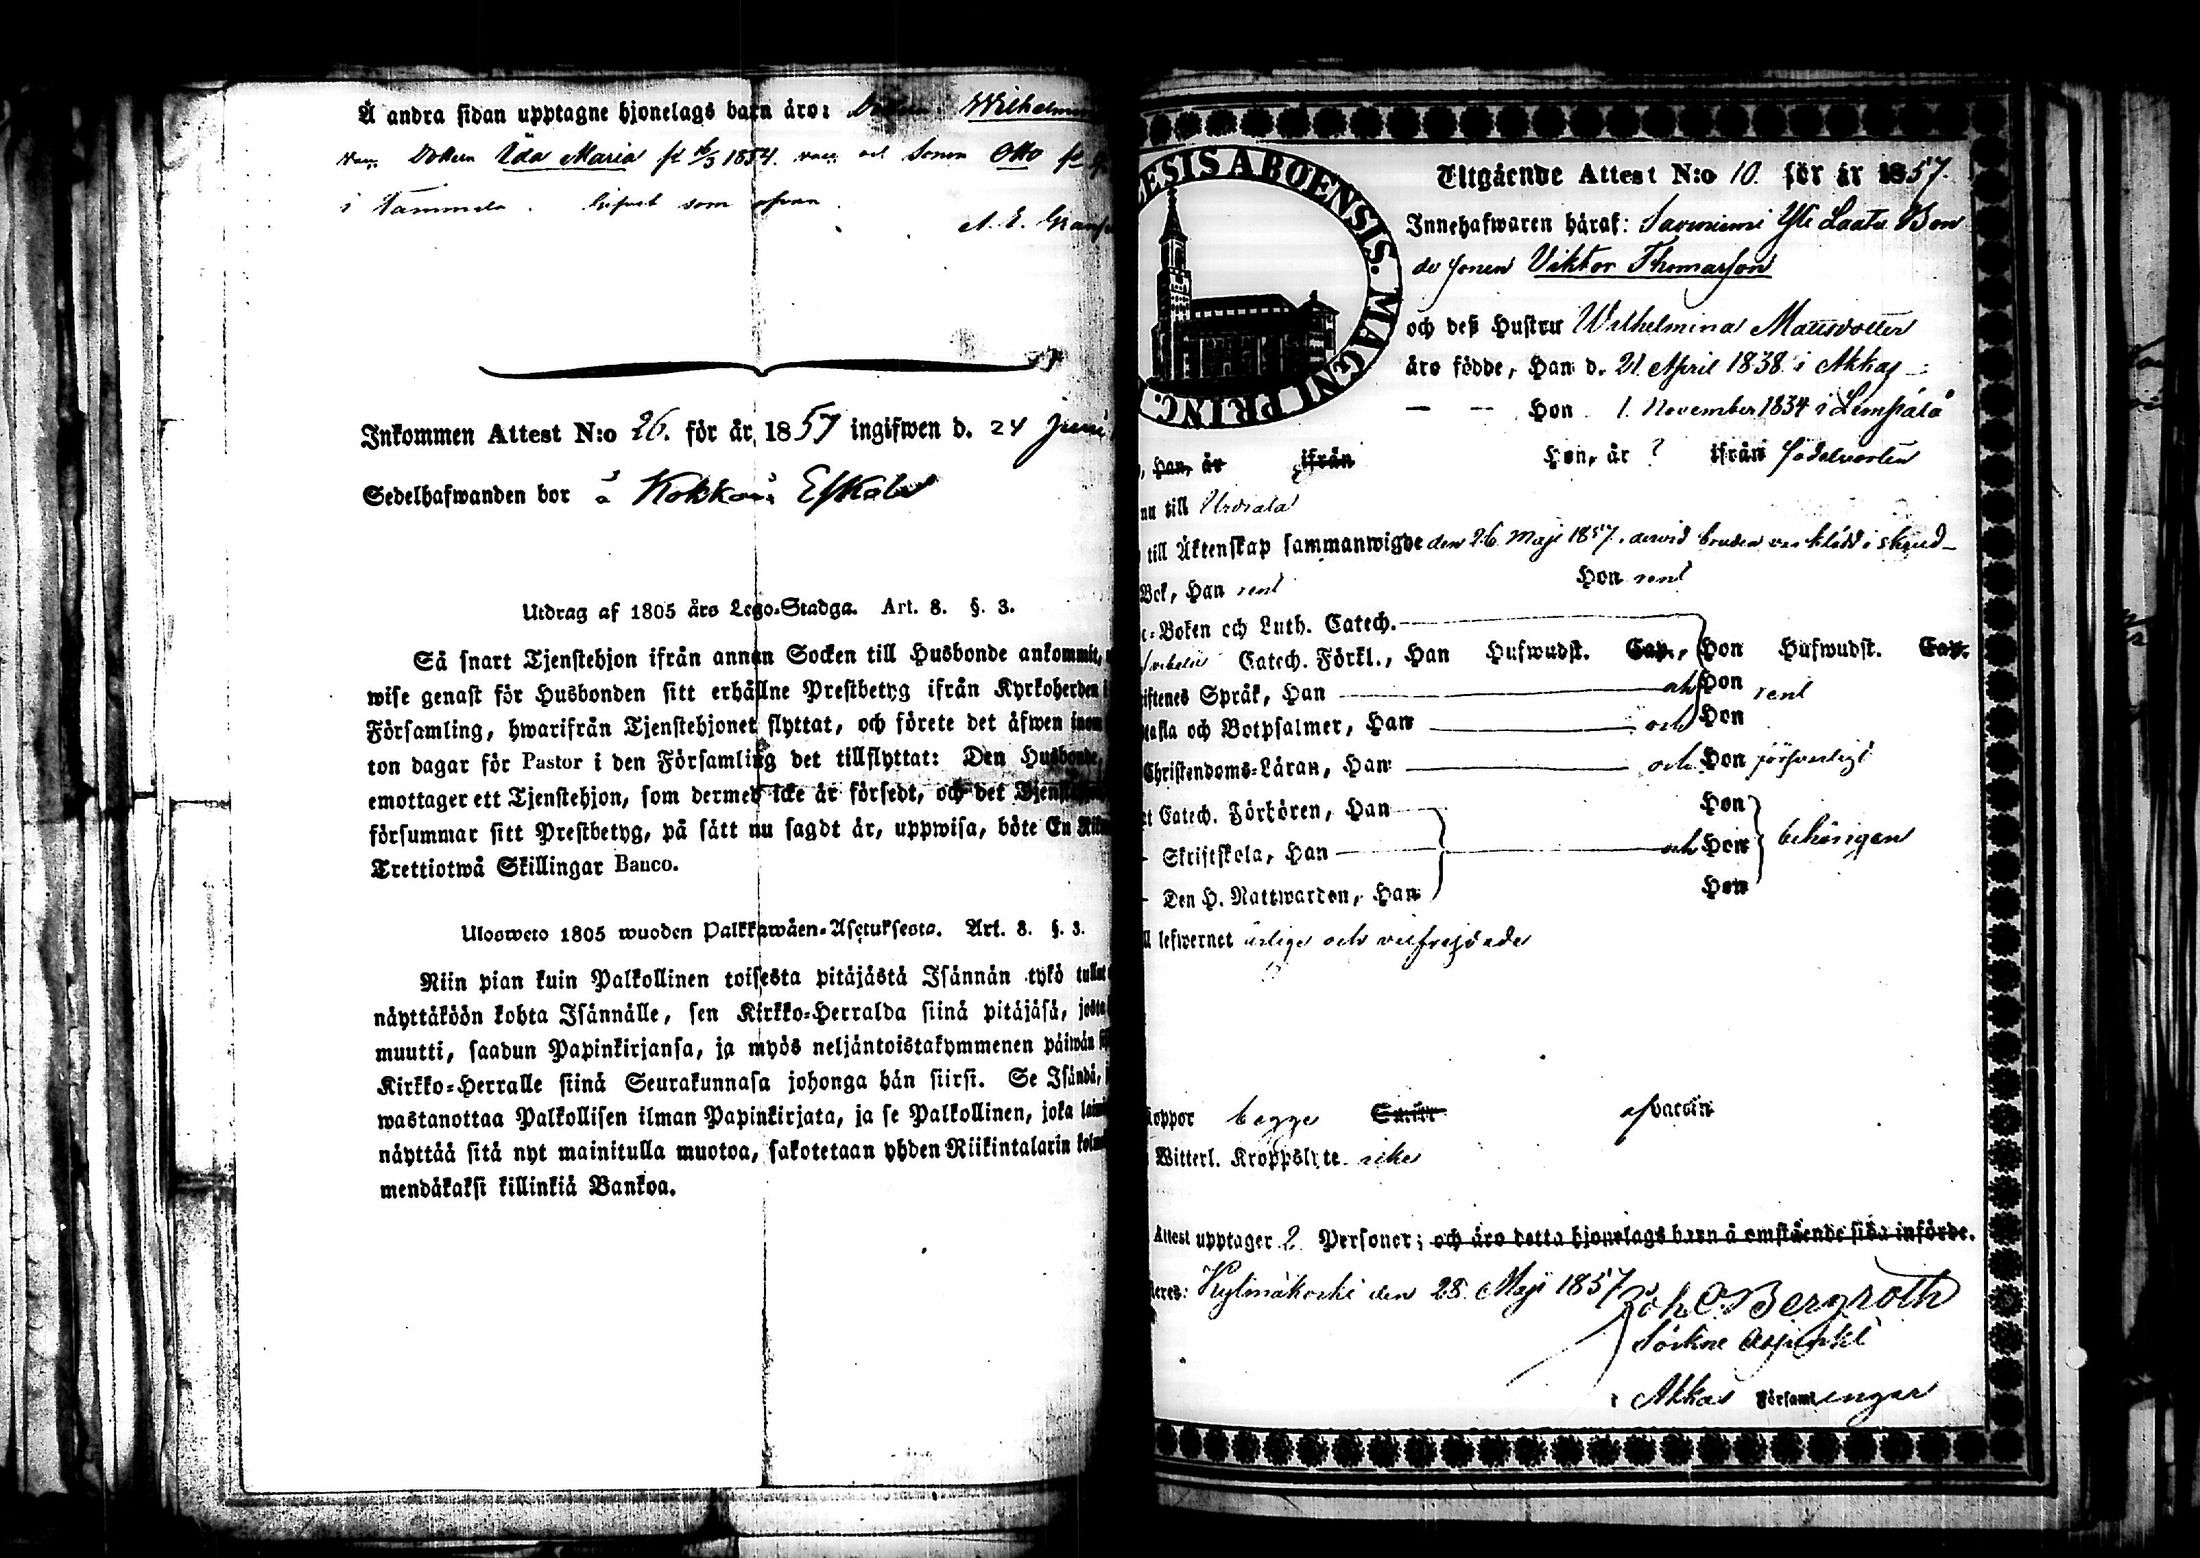 Å andra sidan upptagne hjonelags barn äro: Dottern Wilhelmin
vac, Dottern Ida Maria fr 1854. vac och Sonen Otto fr
i Tammela. lifvet som ofvan.
A. E. Granf
Inkommen Attest N:o 26. för år 1857 ingifwen d. 24 Juni
Sedelhafwanden bor å Kokkois Eskola
Utdrag af 1805 års Lego-Stadga. Art. 8. §. 3.
Så snart Tjenstehjon ifrån annan Socken till Husbonde ankommit,
wise genast för Husbonden sitt erhållne Prestbetyg ifrån Kyrkoherden i
Församling, hwarifrån Tjenstehjonet flyttat, och förete det äfwen inom
ton dagar för Pastor i den Församling det tillflyttat: Den Husbonde,
emottager ett Tjenstehjon, som dermed icke är försedt, och det Tjenste
försummar sitt Prestbetyg, på sätt nu sagdt är, uppwisa, böte En Riks
Trettiotwå Skillingar Banco.
Ulosweto 1805 wuoden Palkkawäen-Asetuksesta. Art. 8. §. 3.
Niin pian kuin Palkollinen toisesta pitäjästä Isännän tykö tullut
näyttäköön kohta Isännälle, sen Kirkko-Herralda siinä pitäjäsä, josta
muutti, saadun Papinkirjansa, ja myös neljäntoistakymmenen päiwän
Kirkko-Herralle siinä Seurakunnasa johonga hän siirsi. Se Isändä,
wastanottaa Palkollisen ilman Papinkirjata, ja se Palkollinen, joka laimi
näyttää sitä nyt mainitulla muotoa, sakotetaan yhden Riikintalarin kolm
mendäkaksi killinkiä Bankoa.
ESIS ABOENSIS. MAGNI PRINC.
Utgående Attest N:o 10. för år 1857.
Innehafwaren häraf: Saviniemi Yli Laata Bon
de sonen Viktor Thomasson
och deß Hustru Wilhelmina Mattsdotter
äro födde, Han d. 21. April 1838 i Akkas
— — Hon 1. November 1834 i Lempälä
, Han, är ifrån Hon, är ? ifrån födelseorten
nu till Urdiala
till Äktenskap sammanwigde den 26. Maji 1857, dervid bruden var klädd i skrud_
Bok, Han rent Hon rent
c-Boken och Luth. Catech.
Catech. Förkl., Han Hufwudst. Cap., Hon Hufwudst. Cap.
riftenes Språk, Han och Hon rent
tafla och Botpsalmer, Han och Hon
Christendoms-Läran, Han och Hon försvarligt
et Catech. Förhören, Han Hon
- Skriftskola, Han och Hon behörigen
- Den H. Nattwarden, Han Hon
ll lefwernet ärlige och välfrejdade
koppor begge Smitt af vaccin
Witterl. Kroppslyte icke
Attest upptager 2 Personer; och äro detta hjonelags barn å omstående sida införde.
teres: Kylmäkoski den 28. Maji 1857.
Joh. C. Bergroth
Sockne Adjunkt
i Akkas Församlingar